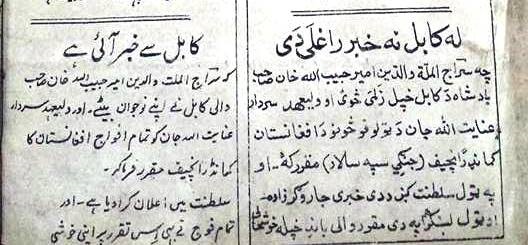 له کابل نه خبر راغلی دی
چه سراج الملة والدین امیر حبیب الله خان صاحب
بادشاه د کابل خپل زلمی خوئ او ولیعهد سردار
عنایت الله جان د ټولو فوځونو د افغانستان
کمانډر انچیف (جنگی سپه سالار) مقرر که - او
په ټول سلطنت کښ د دی خبری جار وکړ زاده -
او ټول لښکر په دی مقرر والی باندِ خپله خوشحالی
کابل سے خبر آئی ہے
کہ سراج الملت والدین امیر حبیب اللہ خان صاحب
والی کابل نے اپنے نوجوان بیٹے - اور ولیعہد سردار
عنایت اللہ جان کو تمام افواج افغانستان کا
کمانڈر انچیف مقرر فرماکر -
سلطنت میں اعلان کرا دیا ہے - اور
تمام فوج نے بھی اس تقرر پر اپنی خوشی